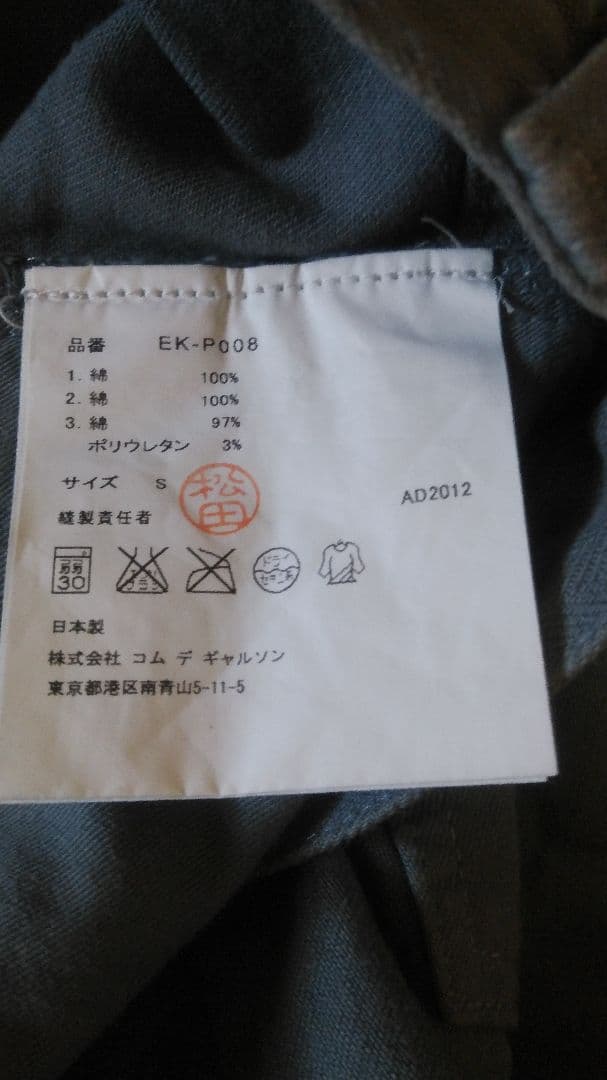 品番 EK-P008
1. 綿 100%
2. 綿 100%
3. 綿 97%
ポリウレタン 3%
サイズ S
松田
AD2012
縫製責任者
弱 30
ドライ セキユ系
日本製
株式会社 コム デ ギャルソン
東京都港区南青山5-11-5